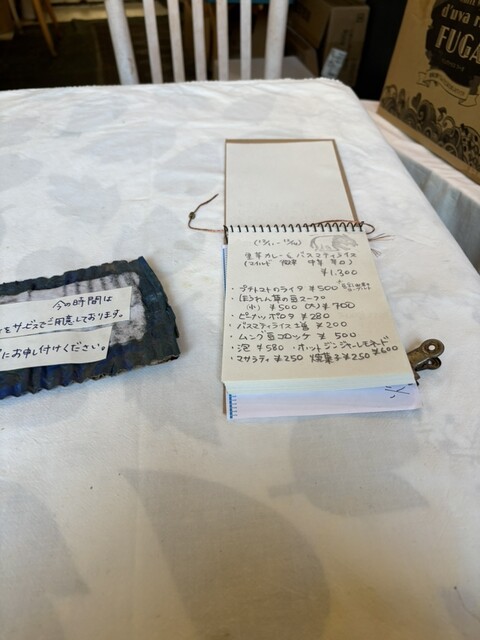 d'uva r
FUGA
今の時間は
をサービスでご用意しております。
にお申し付けください。
生姜カレー & バスマティライス
(マイルド 中辛 辛口)
¥1,300
・プチトマトのライタ ¥500
・ほうれん草の豆スープ
(小) ¥500 (大) ¥700
・ピーナッツボロタ ¥280
・バスマティライス1/2盛 ¥200
・ムング豆コロッケ ¥500
・泡 ¥580 ・ホットジンジャーレモネード
¥600
・マサラティ ¥250 焼菓子 ¥250